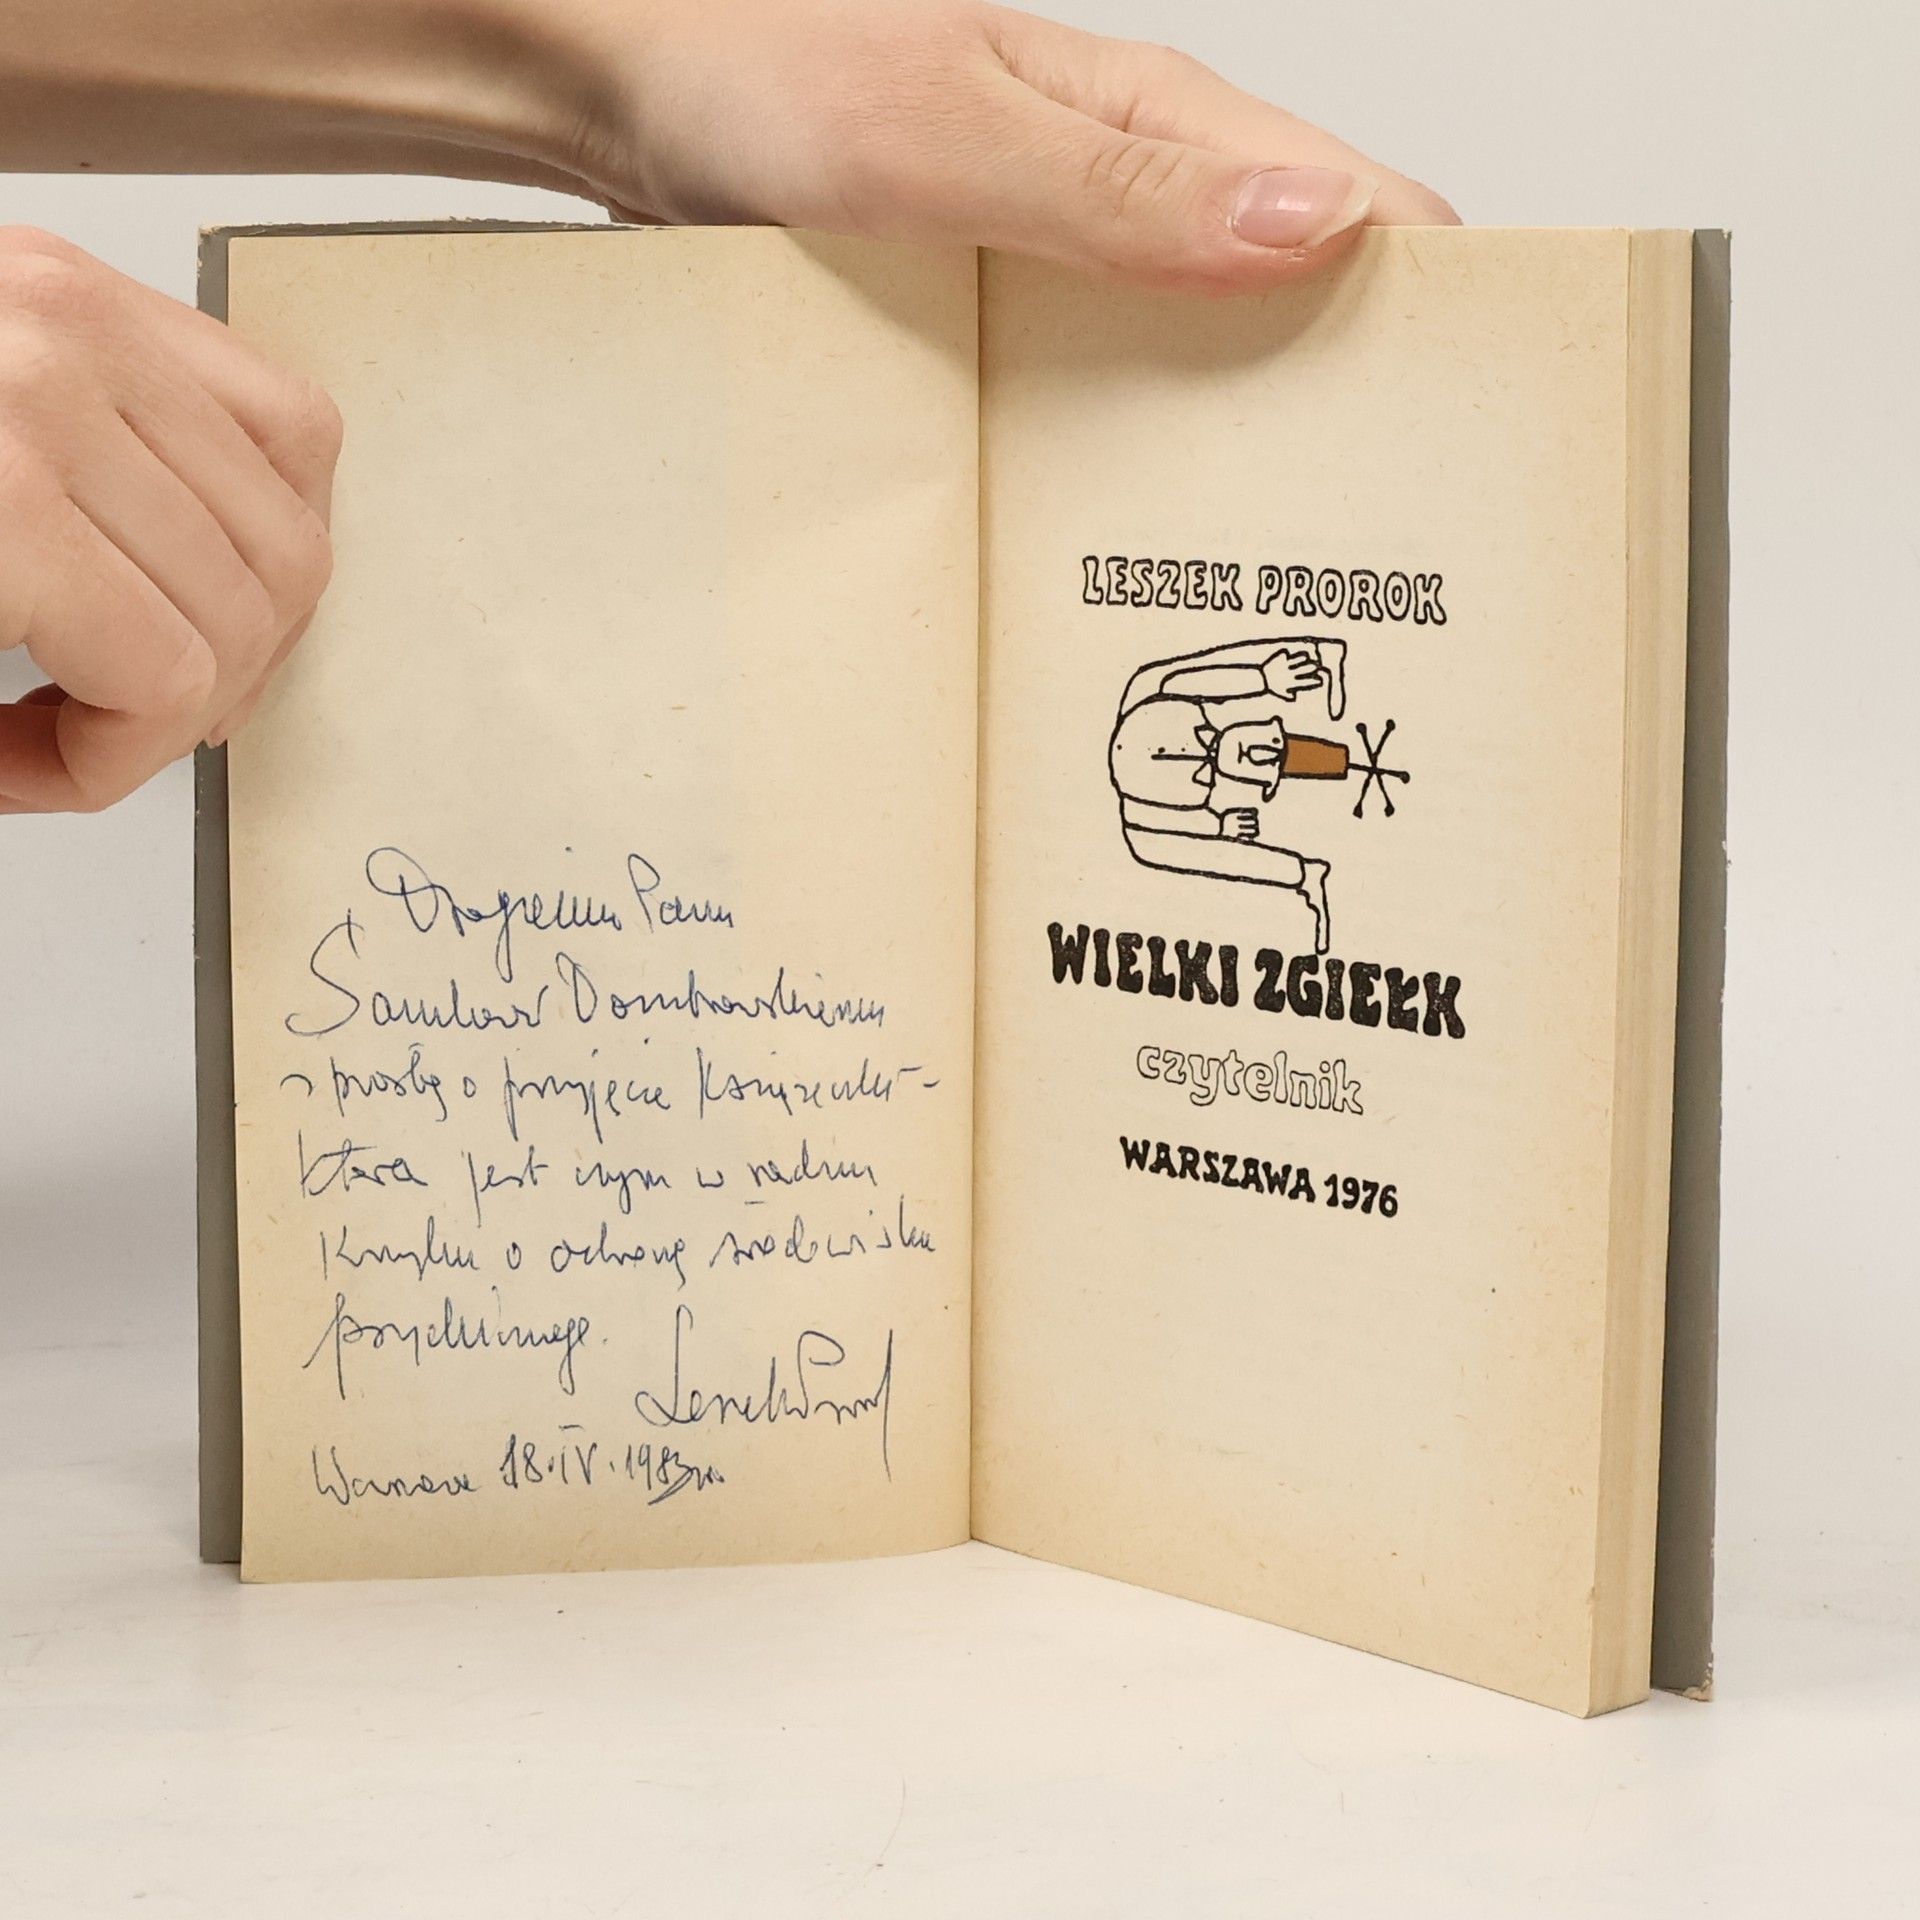 Drogiemu Panu
Sambor Dombrowskiemu
z prośbą o przyjęcie książeczki -
która jest czym w rodzaju
krzyku o ochronę środowiska
psychicznego.
Leszek Prorok
Warszawa 18.IV.1983 r.
LESZEK PROROK
WIELKI ZGIEŁK
czytelnik
WARSZAWA 1976